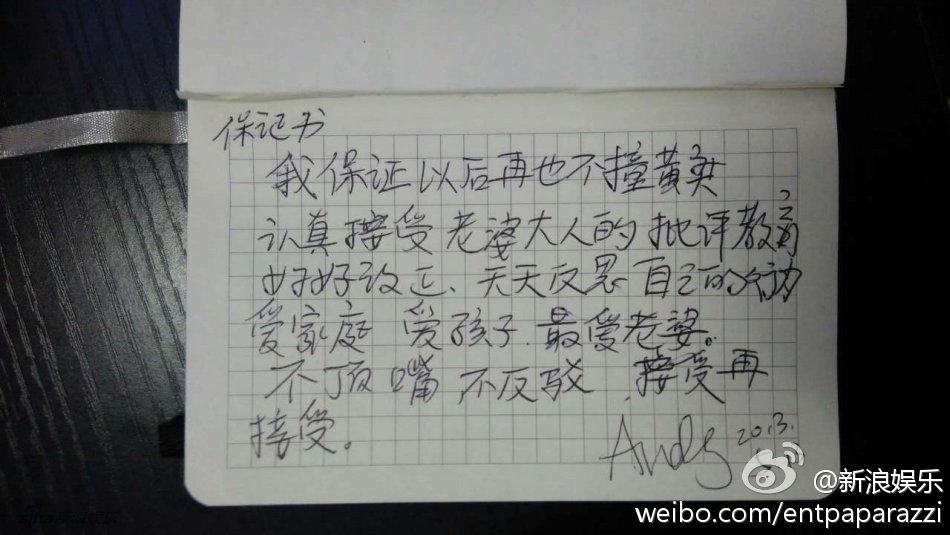 保证书
我保证以后再也不撞黄奕
认真接受老婆大人的批评教育
好好改正、天天反思自己的行动
爱家庭 爱孩子、最爱老婆。
不顶嘴 不反驳 接受再
接受。
Andy 2013.
@新浪娱乐
weibo.com/entpaparazzi